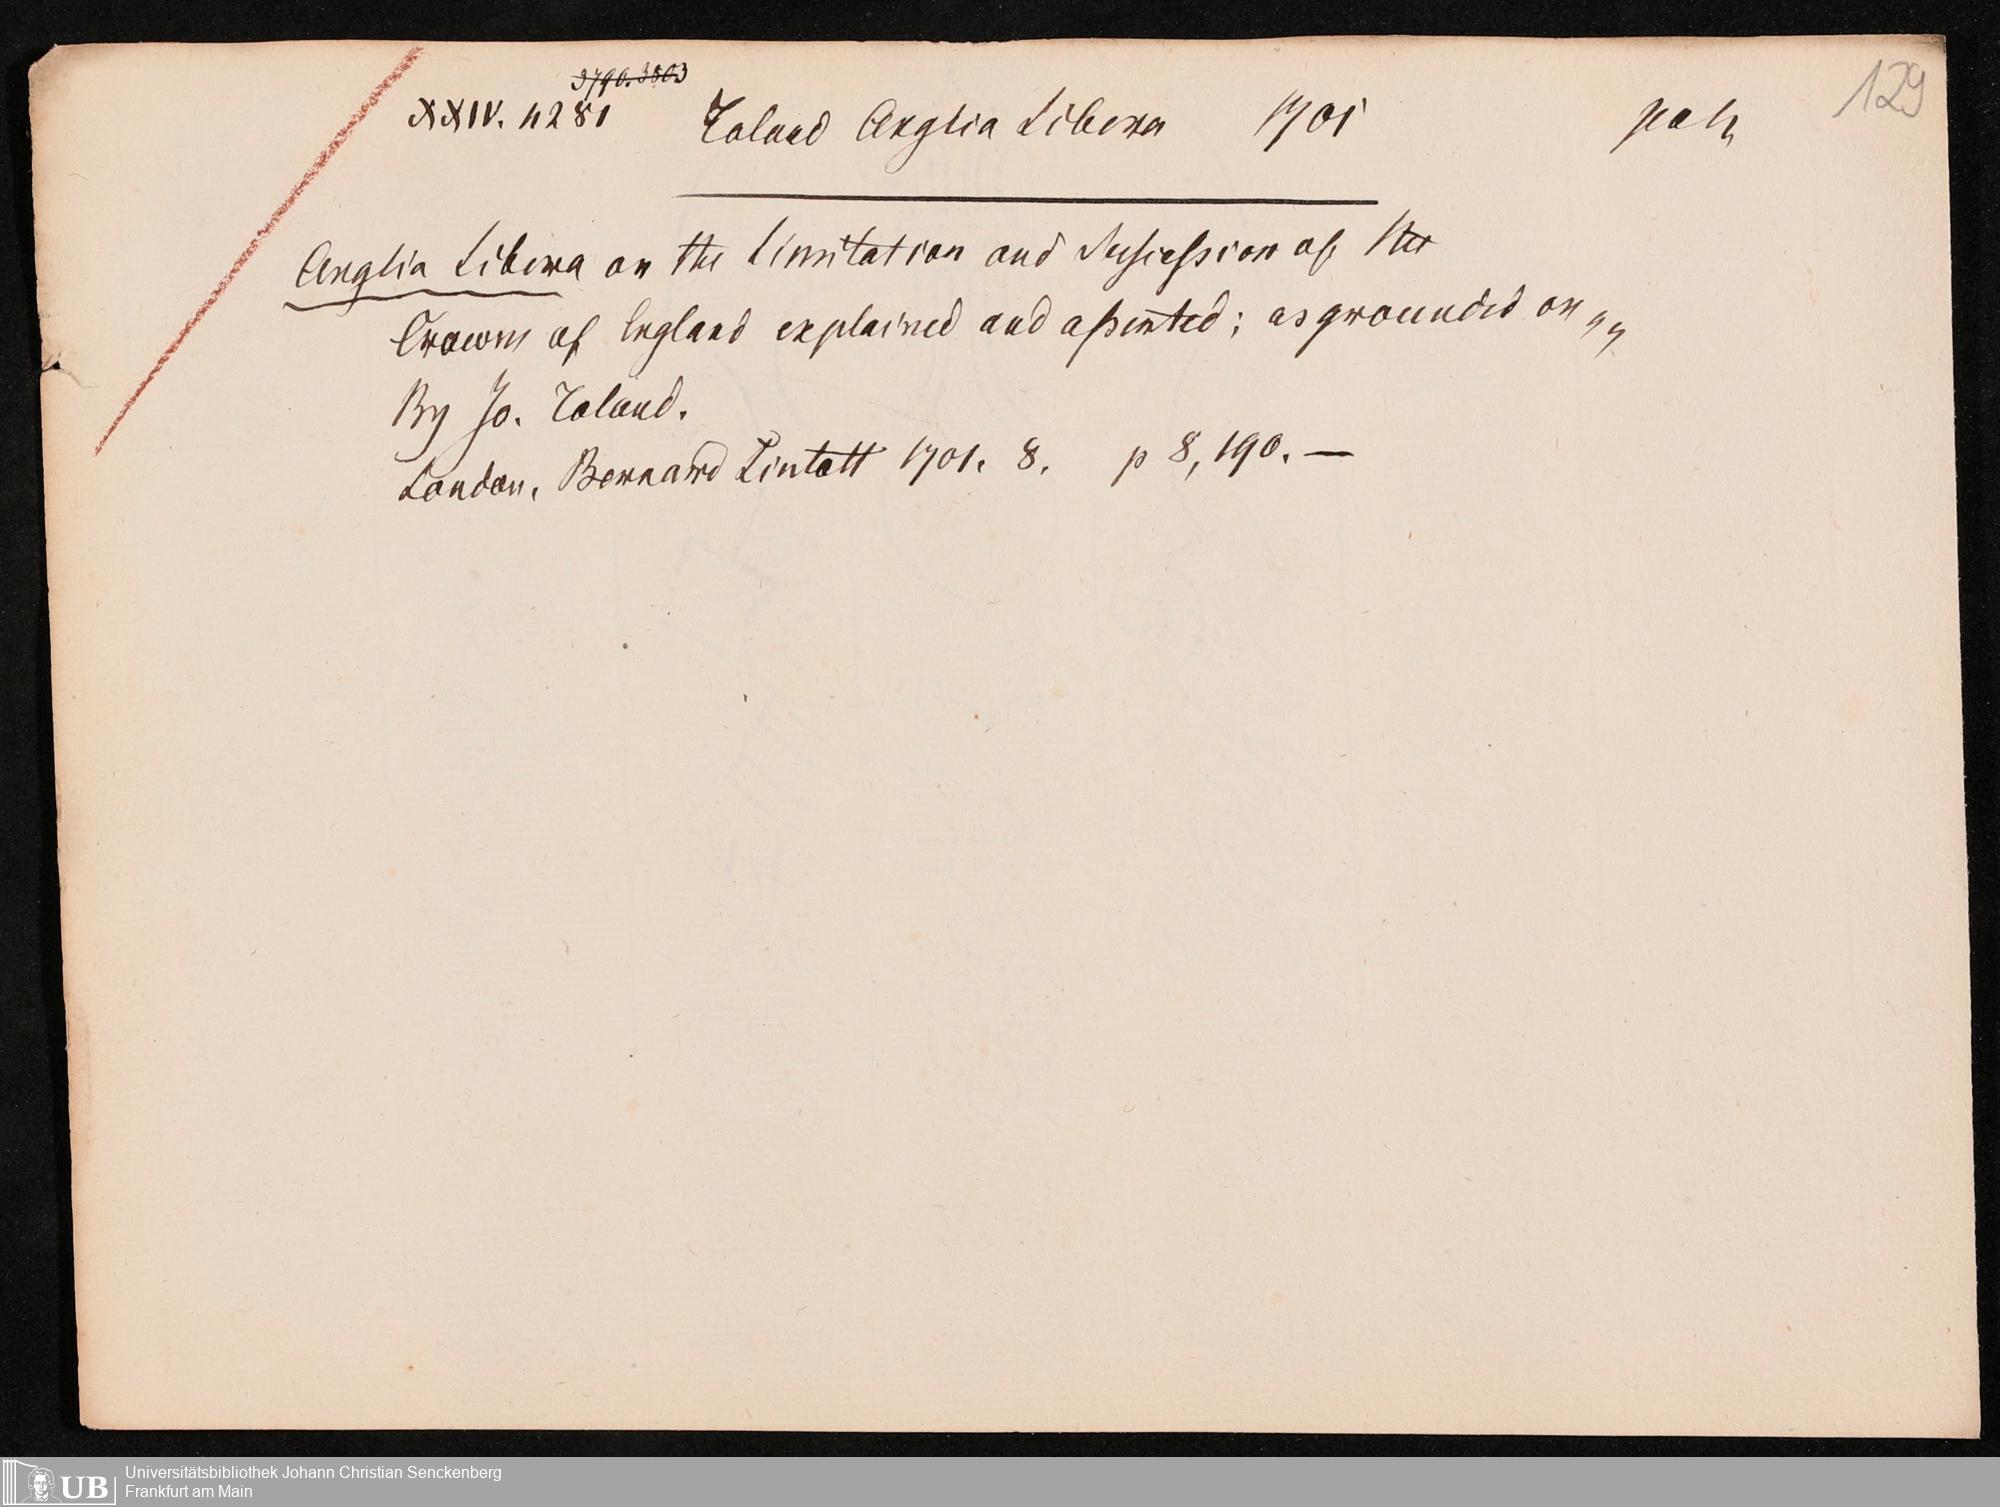 129
3790.3803
XXIV. 4281 Toland Anglia Libera 1701
Anglia Libera or the Limitation and Succession of the
Crown of England explained and asserted; as grounded on „„
By Jo. Toland.
London, Bernard Lintott 1701. 8. p 8, 190. —
UB Universitätsbibliothek Johann Christian Senckenberg
Frankfurt am Main